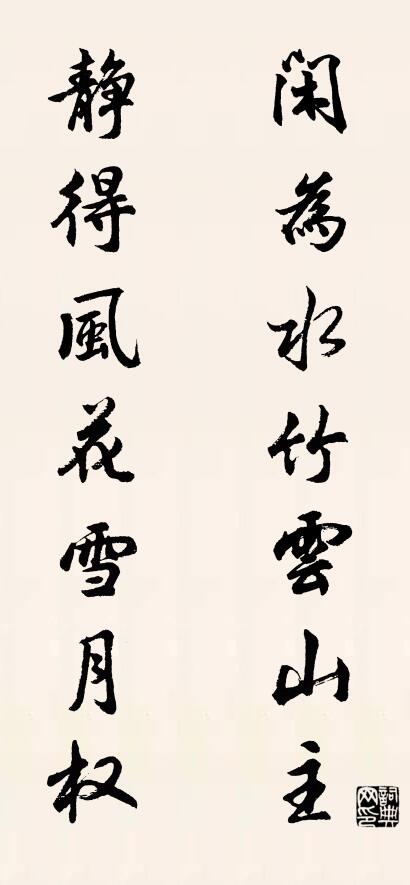 闲為水竹雲山主
静得風花雪月权
詞典网印